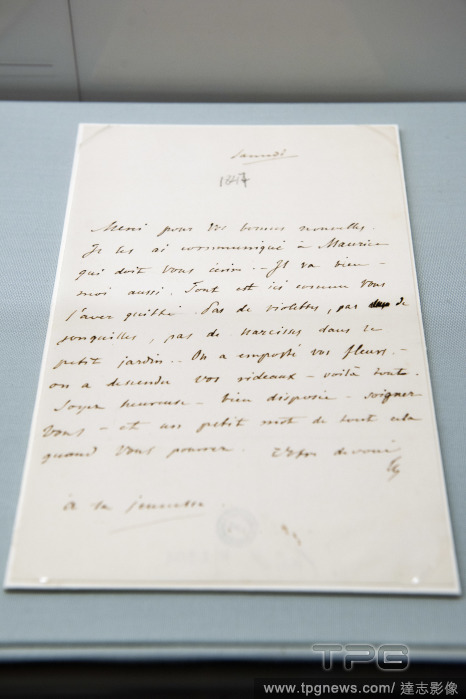 Samedi
1847
Merci pour vos bonnes nouvelles.
Je les ai communiqué à Maurice
qui doit vous écrire.. Il va bien –
moi aussi. Tout est ici comme vous
l'avez quitté. Pas de violettes, pas de
jonquilles, pas de narcisses dans le
petit jardin.. On a emporté vos fleurs. –
on a descendu vos rideaux – voilà tout.
Soyez heureuse – bien disposée – soignez
vous – et un petit mot de tout cela
quand vous pourrez. dévoué
Ch
à la jeunesse
TPG
www.tpgnews.com/ 達志影像